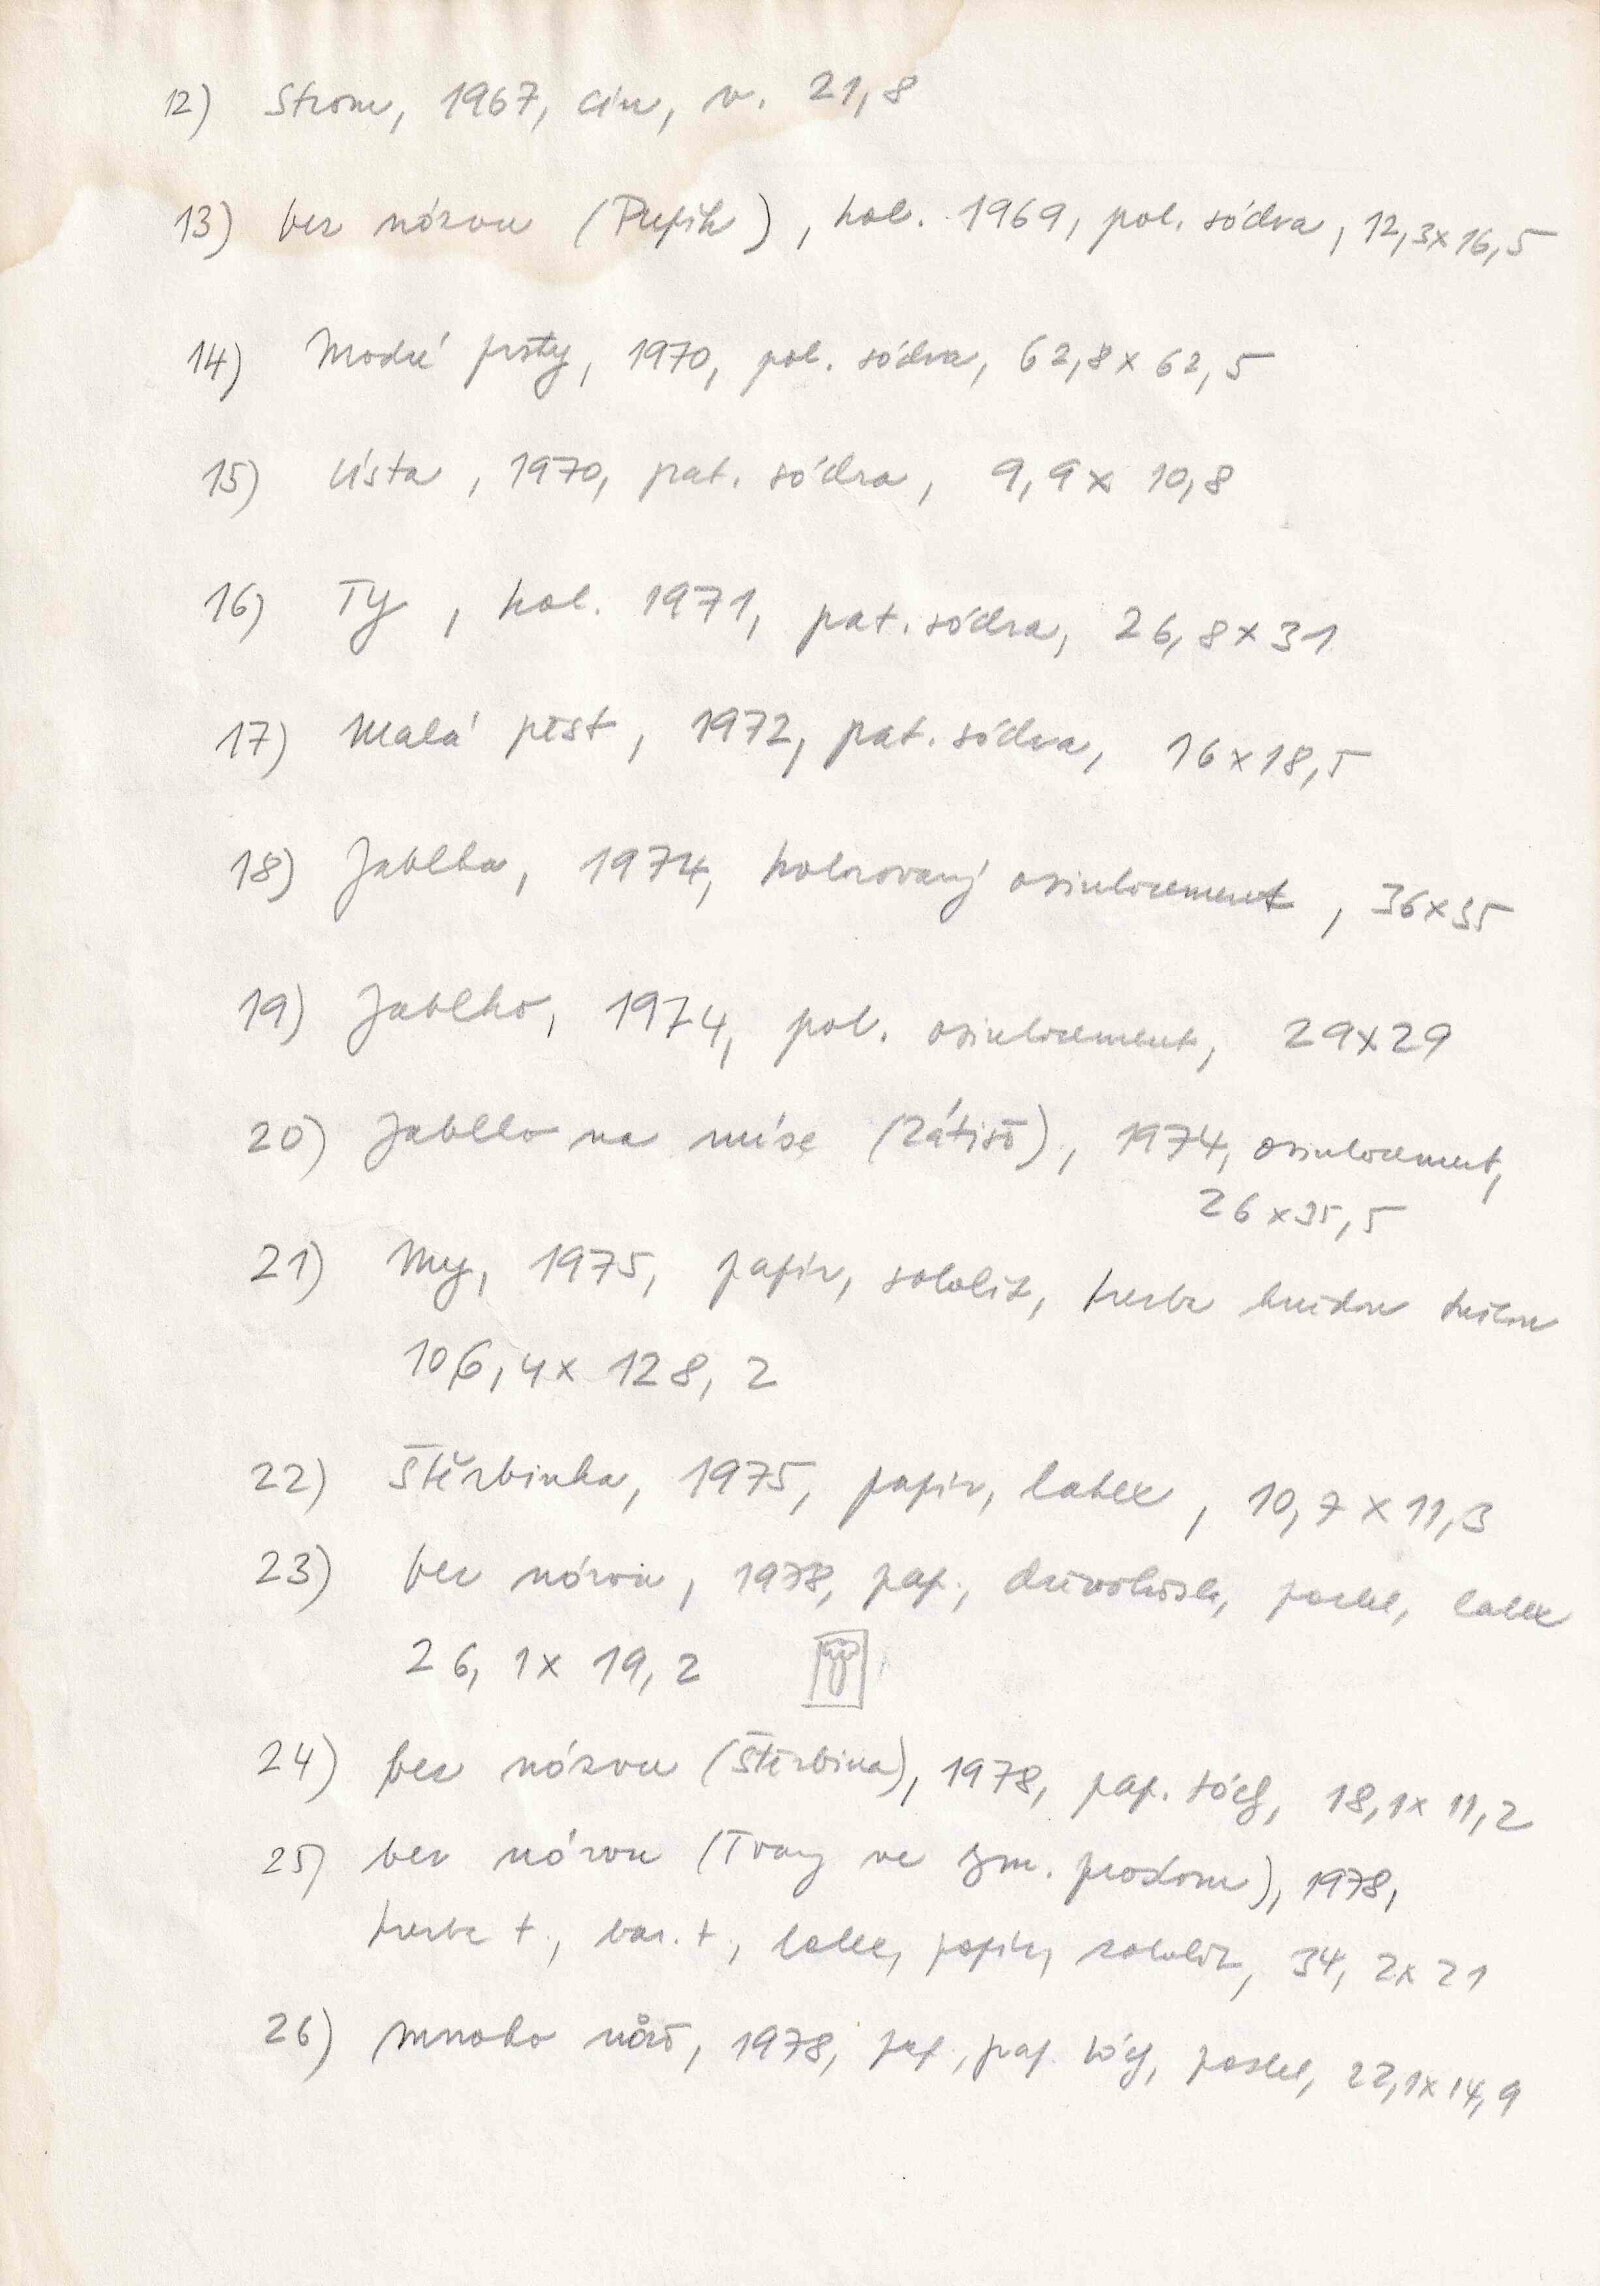 12) Strom, 1967, cín, v. 21,8
13) bez názvu (Pupík), kol. 1969, pol. sádra, 12,3x16,5
14) Modré prsty, 1970, pol. sádra, 62,8x62,5
15) Ústa, 1970, pat. sádra, 9,9x10,8
16) Ty, kol. 1971, pat. sádra, 26,8x31
17) Malá pěst, 1972, pat. sádra, 16x18,5
18) Jablka, 1974, kolorovaný osinkocement, 36x35
19) Jablko, 1974, pol. osinkocement, 29x29
20) Jablko na míse (Zátiší), 1974, osinkocement,
26x35,5
21) My, 1975, papír, sololit, kresba
106,4x128,2
22) Štěrbinka, 1975, papír, latex, 10,7x11,3
23) bez názvu, 1978, pap., dřevotříska, pastel, latex
26,1x19,2
24) bez názvu (Štěrbina), 1978, pap. sáčky, 18,1x11,2
25) bez názvu (Tvary ve prostoru), 1978,
kresba t., bar. t., latex, papír, sololit, 34,2x21
26) Mnoho úst, 1978, pap., pap. sáčky, pastel, 22,1x14,9